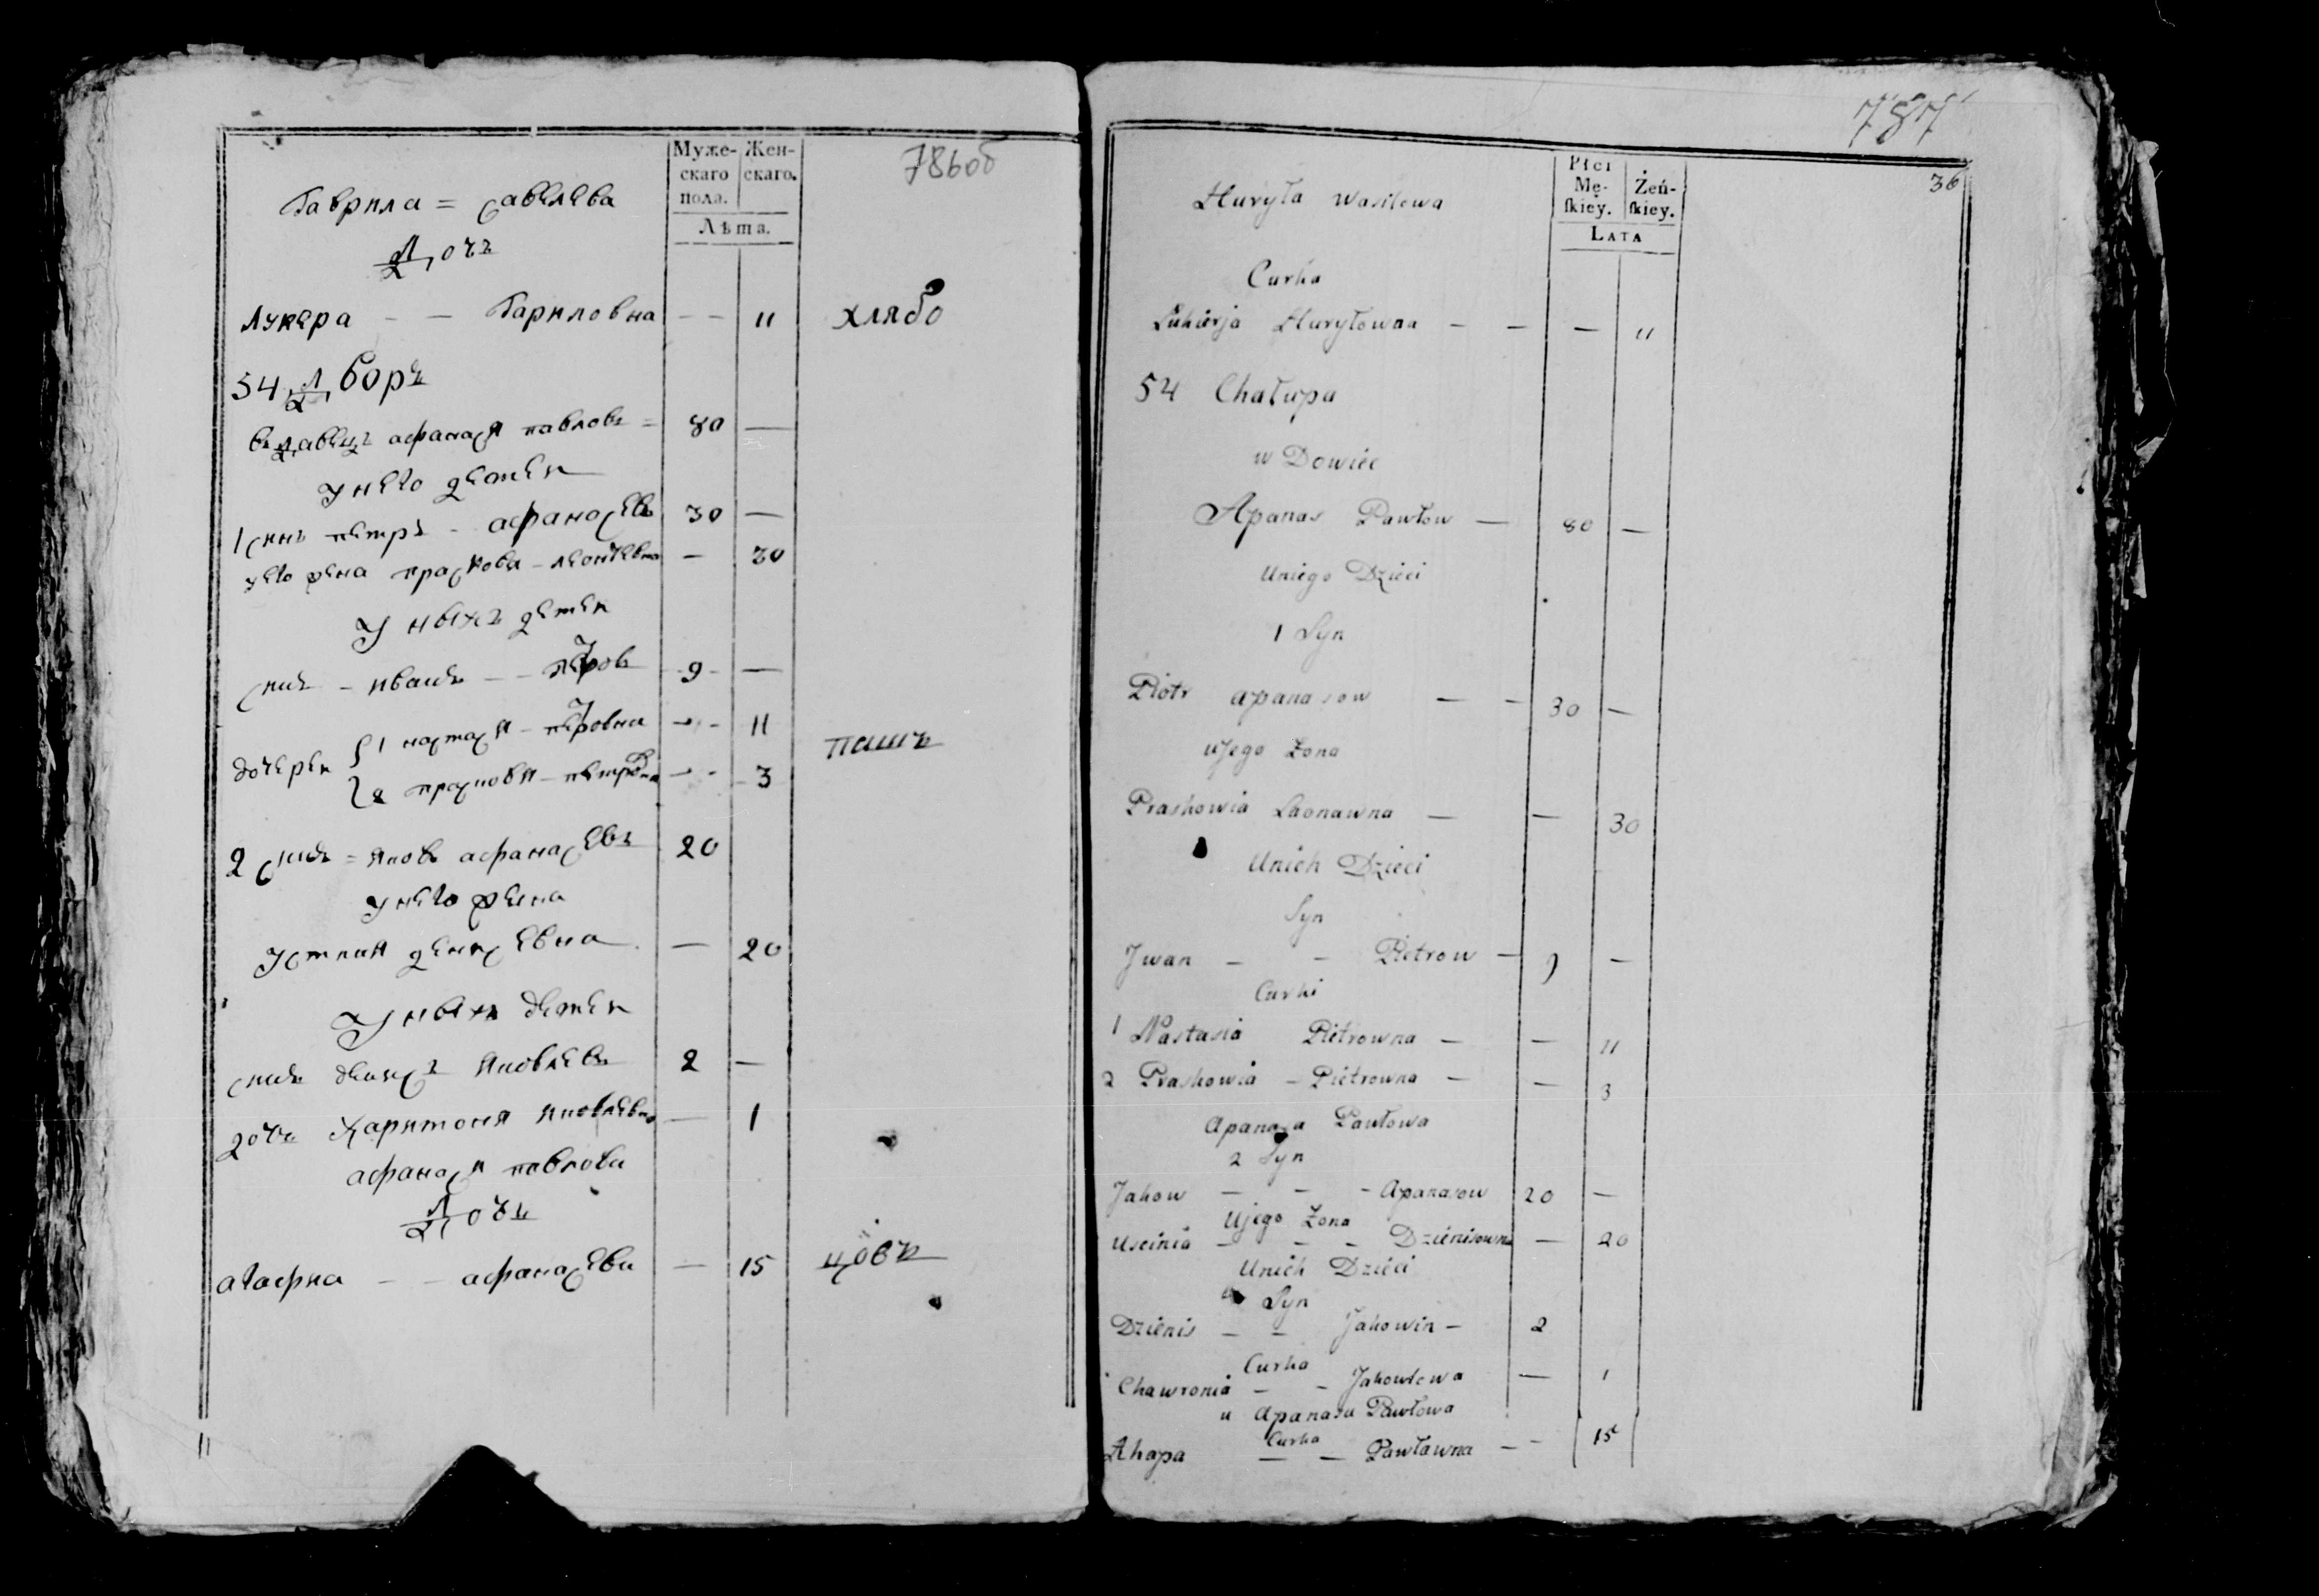 Муже-
скаго
пола.
Жен-
скаго.
Лѣта.
786об
Гаврила = Савелева
Дочь
Лукера — — Гариловна — — 11 хлябо
54 Дворъ
Вдавецъ Афанася Павловъ = 80 —
У него детеи
1 Синъ Петръ - Афанасевъ 30 —
У его жена Прасковя - Леонтевна — 30
У ныхъ детеи
Синъ - Иванъ — — Петровъ 9 —
Дочереи 1 Настася - Петровна — - 11
2 Прасковя - Петровна — - 3
пашъ
2 Синъ = Яковъ Афанасевъ 20
У него жена
Устиня Денисевна — 20
У ныхъ детеи
Синъ Денисъ Яковлевъ 2 —
Дочь Харитоня Яковлевна — 1
Афанася Павлова
Дочь
Агафиа — — Афанасева — 15 цовъ
11
787
36
Płci
Mę-
ſkiey.
Żeń-
ſkiey.
LATA
Huryła Wasilowa
Curka
Łukierja Huryłowna — — — 11
54 Chałupa
w Dowiec
Apanas Pawłow — 80 —
Uniego Dzieci
1 Syn
Piotr Apanasow — — 30 —
uJego Żona
Praskowia Laonawna — — 30
Unich Dzieci
Syn
Jwan — — Pietrow — 9 —
Curki
1 Nastasia Pietrowna — — 11
2 Praskowia — Pietrowna — — 3
Apanasa Pawłowa
2 Syn
Jakow — — - Apanasow 20 —
Ujego Żona
Uscinia — — — Dzienisowna — 20
Unich Dzieci
Syn
Dzienis — — Jakowin — 2
Curka
Chawronia — — Jakowlowa — 1
u Apanasa Pawłowa
Curka
Ahapa — — Pawławna — — 15